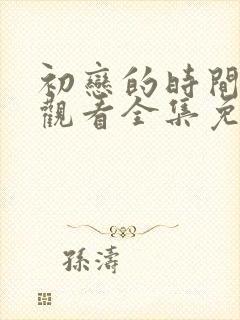 初戀的時間
觀看全集免
孫濤